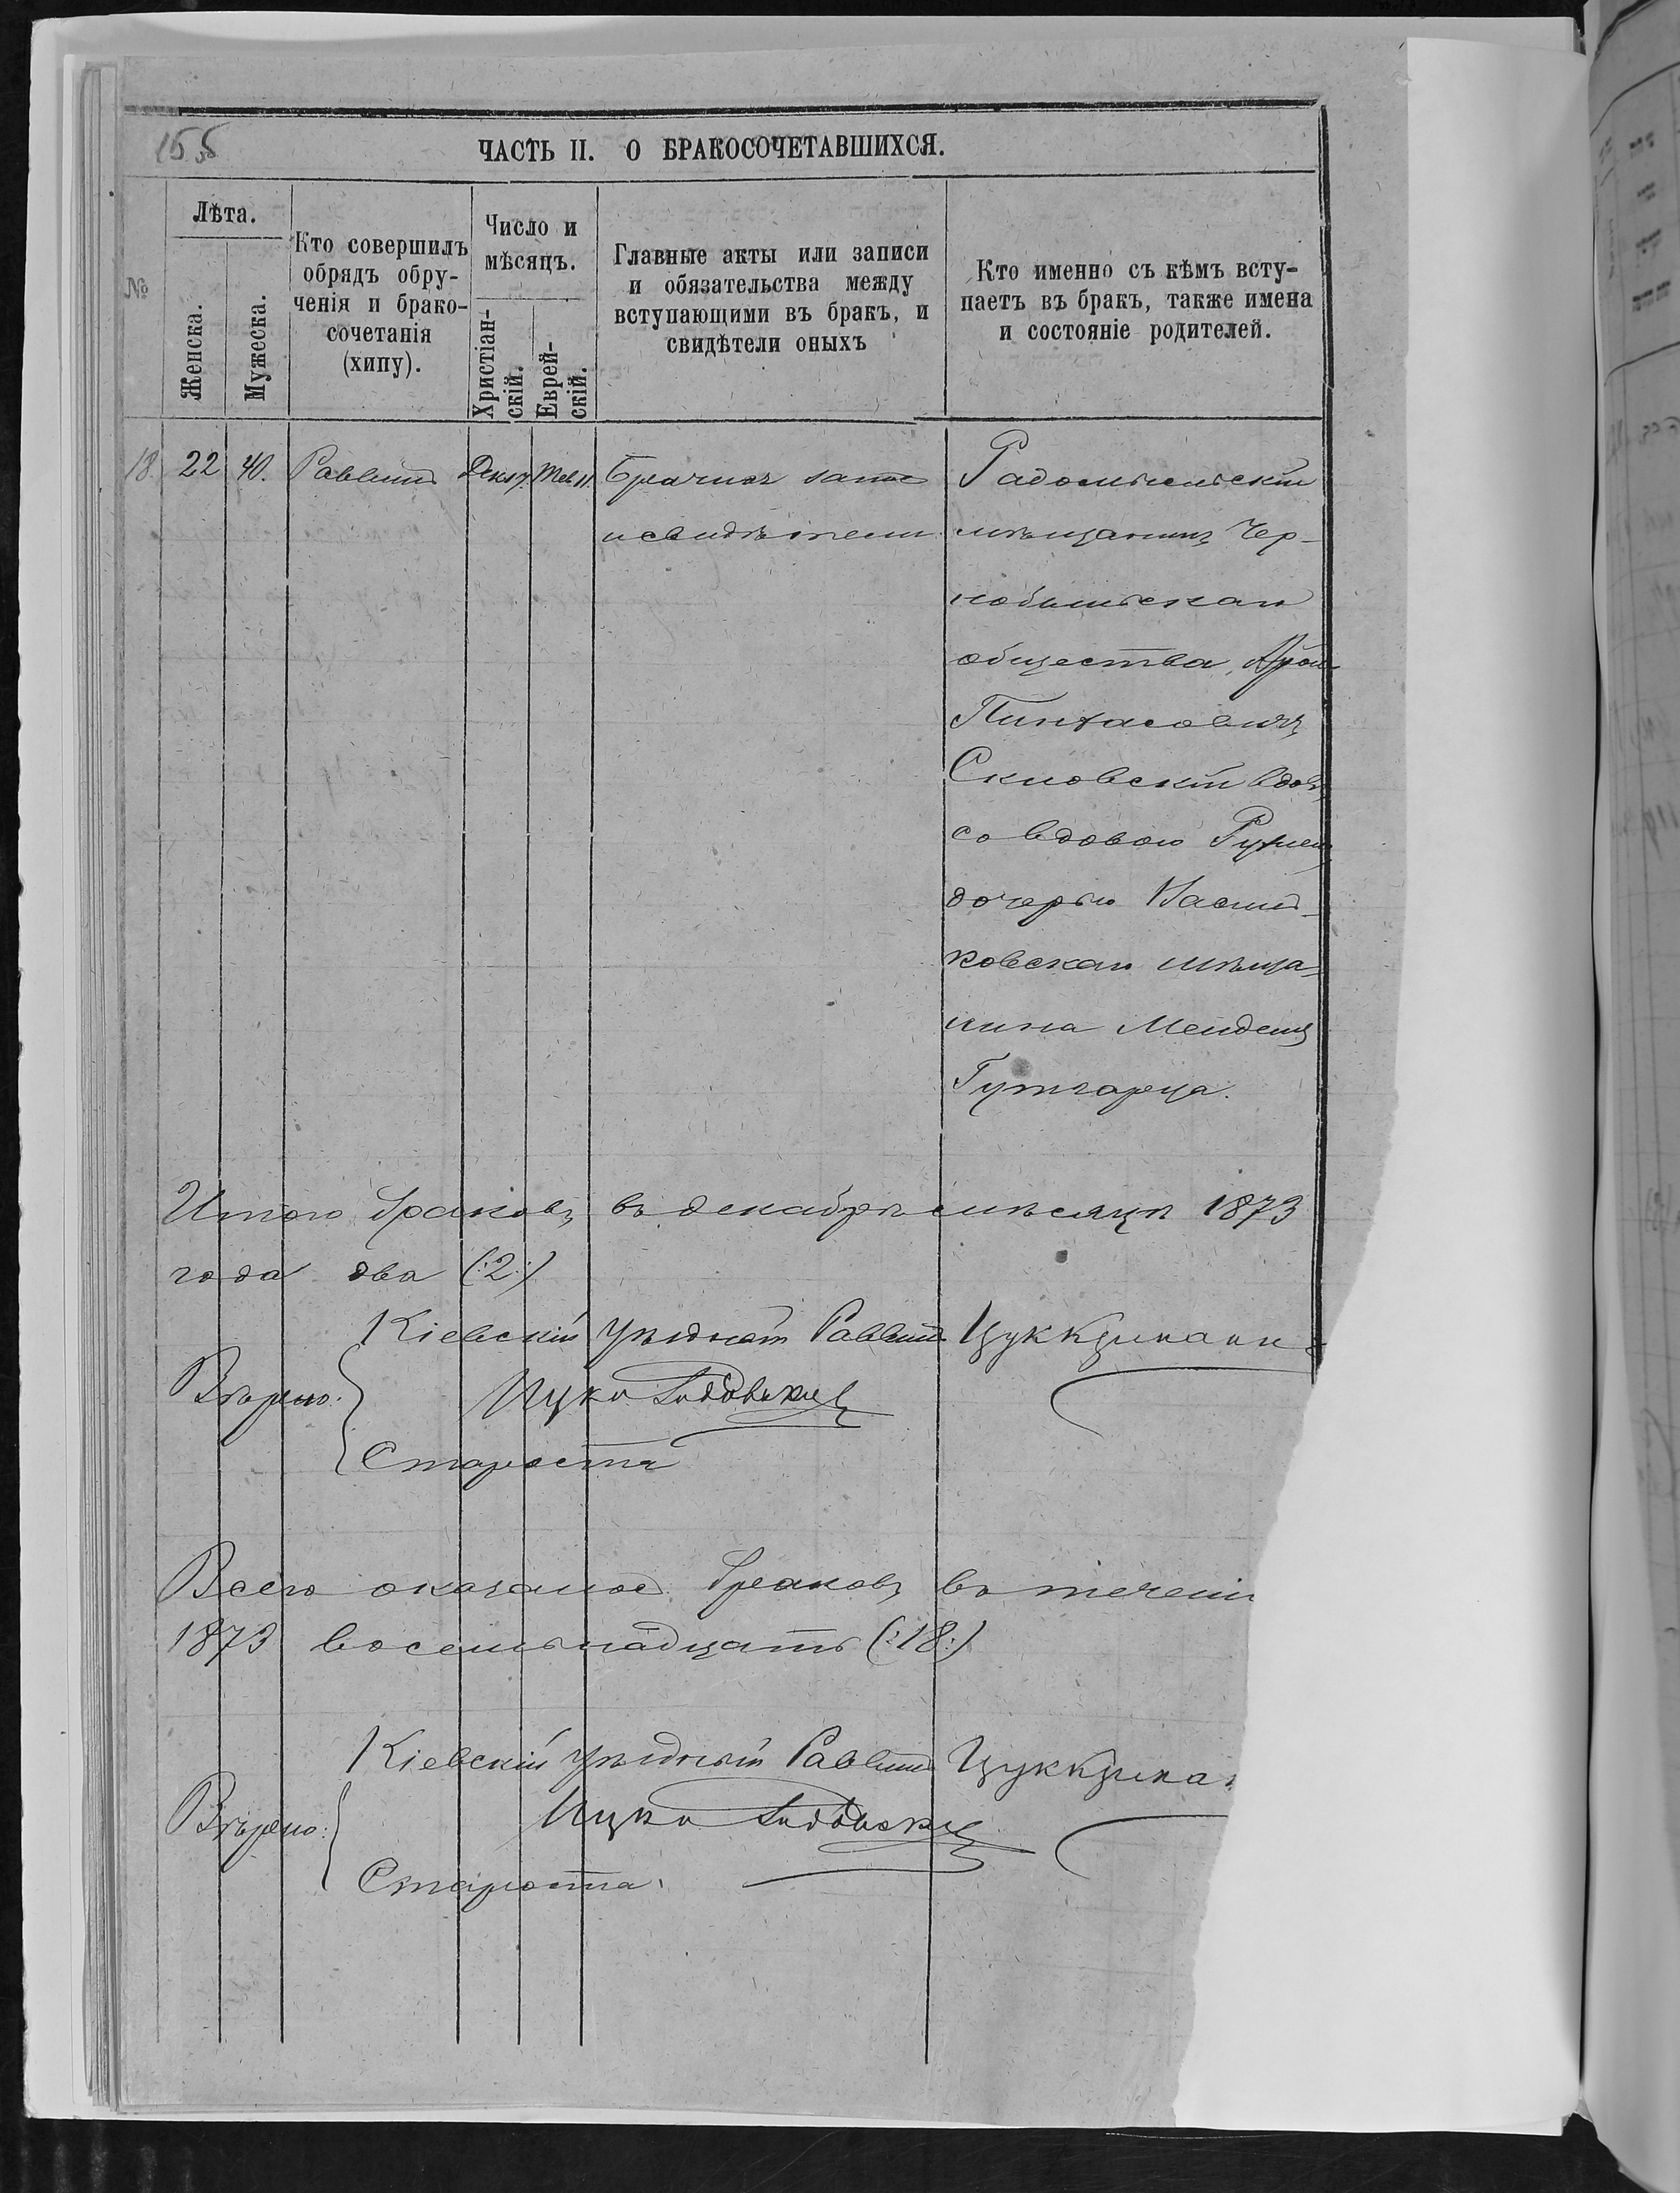 155
ЧАСТЬ II. О БРАКОСОЧЕТАВШИХСЯ.
№
Лѣта.
Женска.
Мужеска.
Кто совершилъ
обрядъ обру-
ченія и брако-
сочетанія
(хипу).
Число и
мѣсяцъ.
Христіан-
скій.
Еврей-
скій.
Главные акты или записи
и обязательства между
вступающими въ бракъ, и
свидѣтели оныхъ
Кто именно съ кѣмъ всту-
паетъ въ бракъ, также имена
и состояніе родителей.
18. 22 40. Раввинъ Дек. 17. Тев. 11. Брачная запись
и свидѣтели
Радомысльскій
мѣщанинъ Чер-
нобыльскаго
общества,
Пинхасовичъ
вдов.
со вдовою
дочерью Василь-
ковскаго мѣща-
нина Менделя
Гутгарца.
Итого браковъ въ декабрѣ мѣсяцѣ 1873
года два (:2:)
Кіевскій уѣздный Раввинъ Цуккерманъ
Вѣрно:
Ицко
Староста
Всего оказалось браковъ въ теченіи
1873 восемьнадцать (:18:)
Кіевскій уѣздный Раввинъ Цуккерма
Вѣрно:
Ицко
Староста.